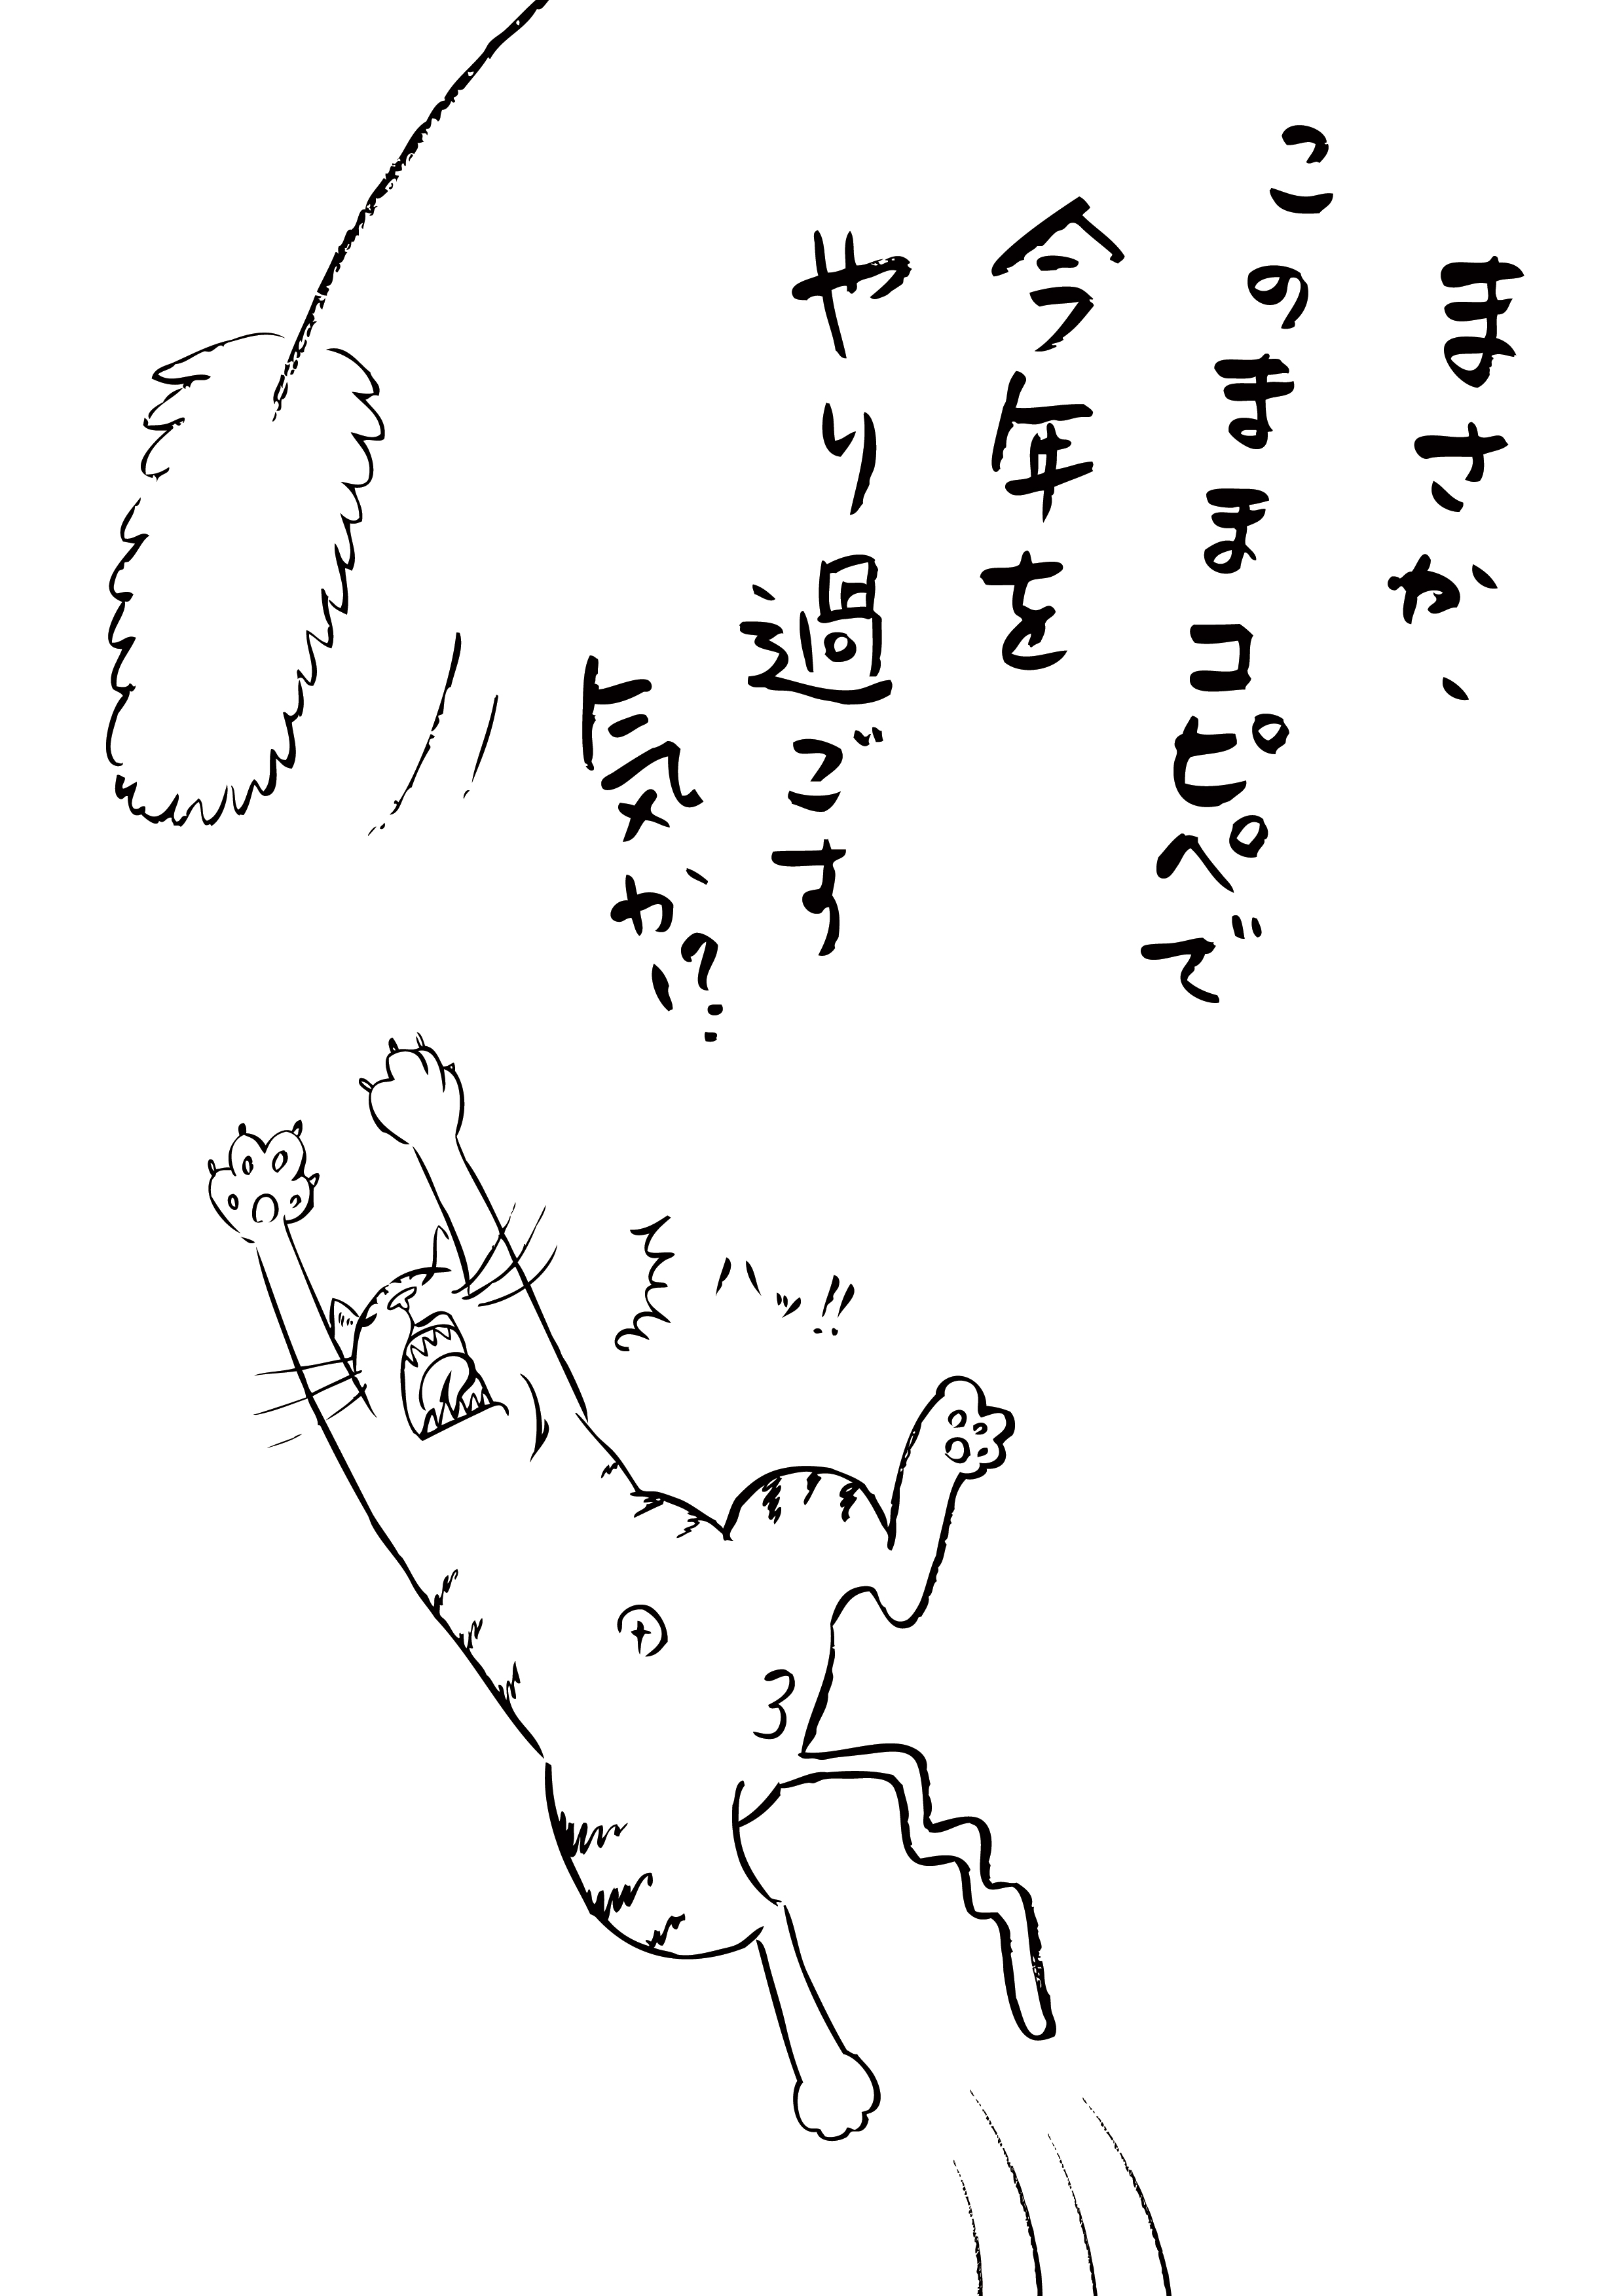 まさか、
このままコピペで
今年を
やり過ごす
気か!?
ハッ!!